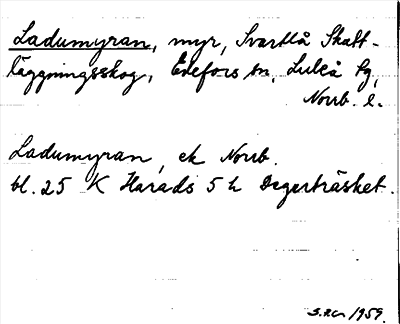 Ladumyran, myr, Svartlå Skatt-
läggningsskog, Edefors sn, Luleå fg,
Norrb. l.
Ladumyran, ek Norrb.
bl. 25 K Harads 5 h Degerträsket.
1959.